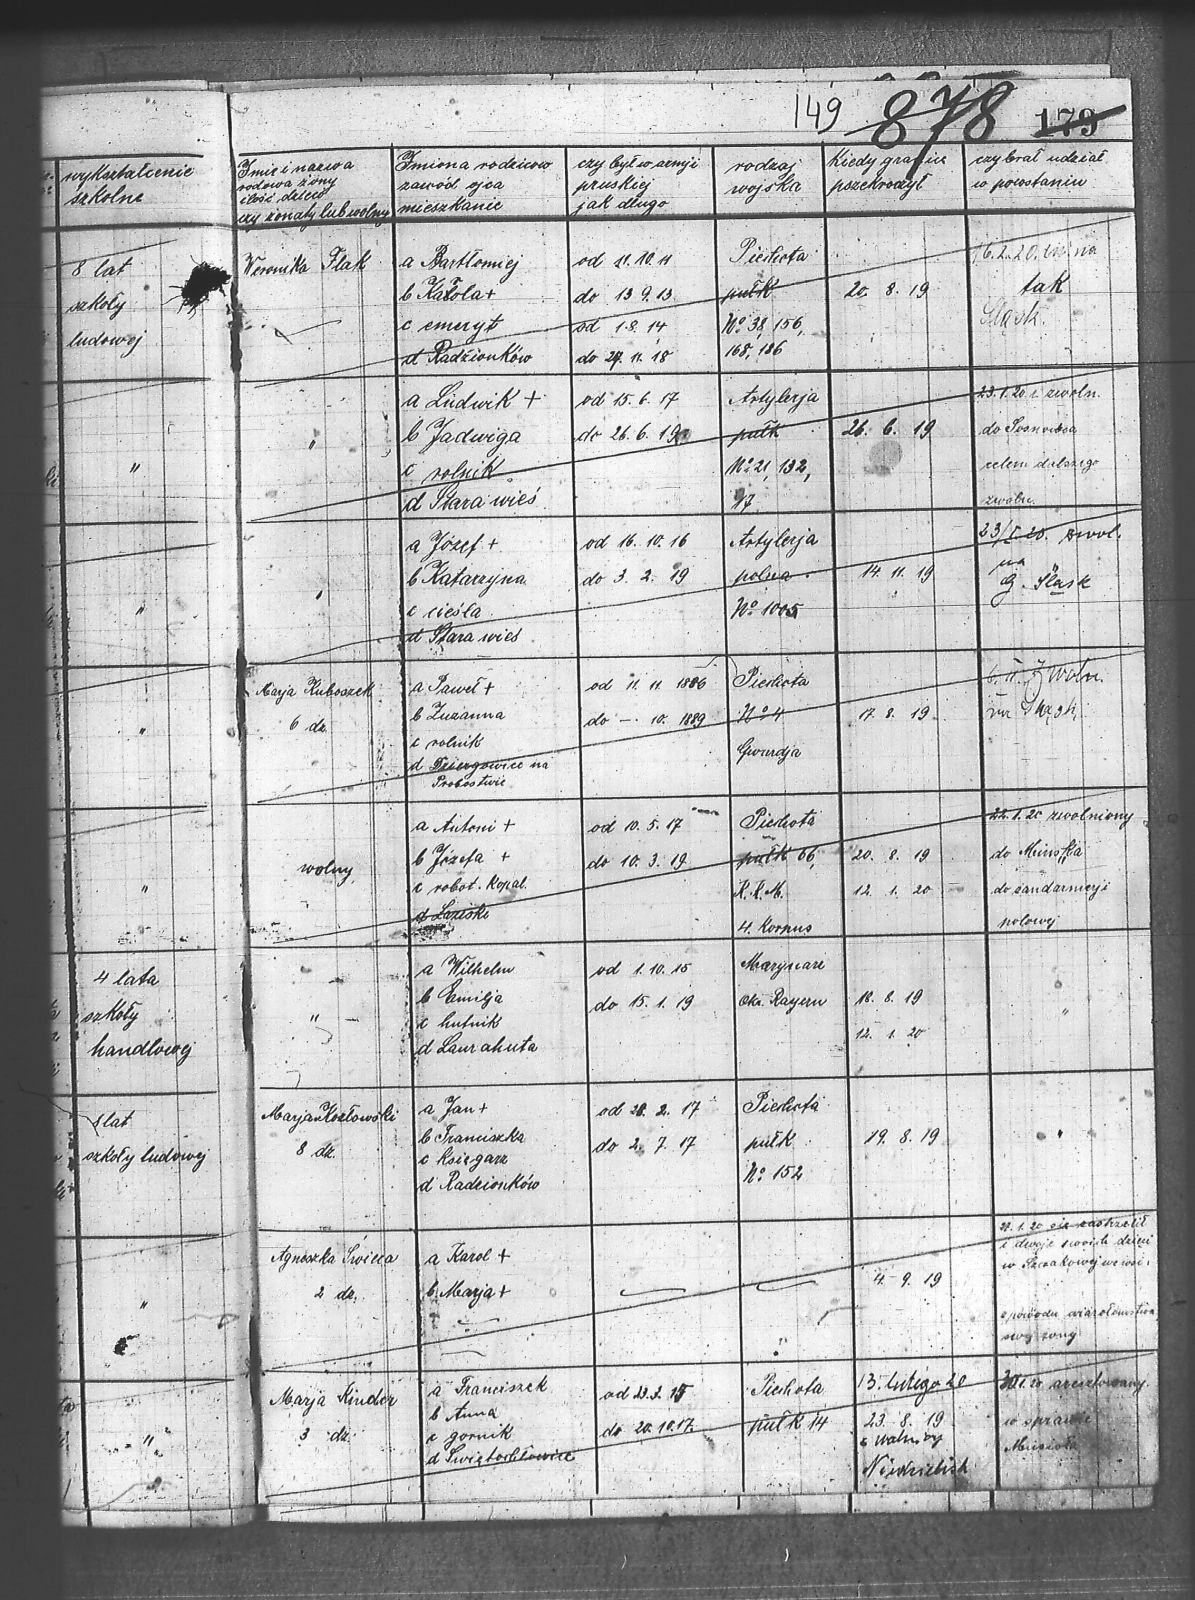 149 878 179
wykształcenie
szkolne
Imię i nazwa
rodowa żony
ilość dzieci
czy żonaty lub wolny
Imiona rodziców
zawód ojca
mieszkanie
czy był w armji
pruskiej
jak długo
rodzaj
wojska
Kiedy granicę
przekroczył
czy brał udział
w powstaniu
8 lat
szkoły
ludowej
Weronika Flak
a Bartłomiej
b Karola +
c emeryt
d Radzionków
od 21.10.11
do 13 9.13
od 1.8.14
do 27.11.18
Piechota
pułk
No 38, 156,
168, 186
20. 8. 19
16.2.20. na
tak
Śląsk.
"
"
a Ludwik +
b Jadwiga
c rolnik
d Stara wieś
od 15. 6. 17
do 26. 6. 19
Artylerja
pułk
No 21, 132,
17
26. 6. 19
23.1.20. zwoln.
do Sosnowca
celem dalszego
zwoln.
"
"
a Józef +
b Katarzyna
c cieśla
d Stara wieś
od 16. 10. 16
do 3. 2. 19
Artylerja
polna
No 1005
14. 11. 19
23/I.20. zwol.
na
G. Śląsk
"
Marja Kuboszek
6 dz.
a Paweł +
b Zuzanna
c rolnik
d na
Probostwie
od 11. 11 1886
do — . 10. 1889
Piechota
No 4
Gwardja
17. 8. 19
6. II. Zwoln.
na Śląsk
"
wolny
a Antoni +
b Józefa +
c robot. kopal.
d Łaziska
od 10. 5. 17
do 10. 3. 19
Piechota
pułk 66,
K. K. M.
4. Korpus
20. 8. 19
12. 1. 20
22.1.20 zwolniony
do Mińska
do żandarmerji
polowej
4 lata
szkoły
handlowej
" —
a Wilhelm
b Emilja
c hutnik
d Laurahuta
od 1.10.15
do 15. 1. 19
Marynarz
Okr. Bayern
18. 8. 19
12. 1. 20
"
8 lat
szkoły ludowej
Marja Kozłowski
8 dz.
a Jan +
b Franciszka
c księgarz
d Radzionków
od 28. 2. 17
do 2. 7. 17
Piechota
pułk
No 152
19. 8. 19
"
"
Agnieszka Świeca
2 dz.
a Karol +
b Marja +
4. 9. 19
28.1.20 się zastrzelił
i dwoje swoich dzieci
w Szczakowej we wsi
z powodu wiarołomstwa
swej żony
"
Marja Kinder
3 dz.
a Franciszek
b Anna
c gornik
d Świętochłowice
od 23.3. 15
do 20.10.17.
Piechota
pułk 14
13. Lutego 20
23. 8. 19
30.1.20 aresztowany
w sprawie
Musioła